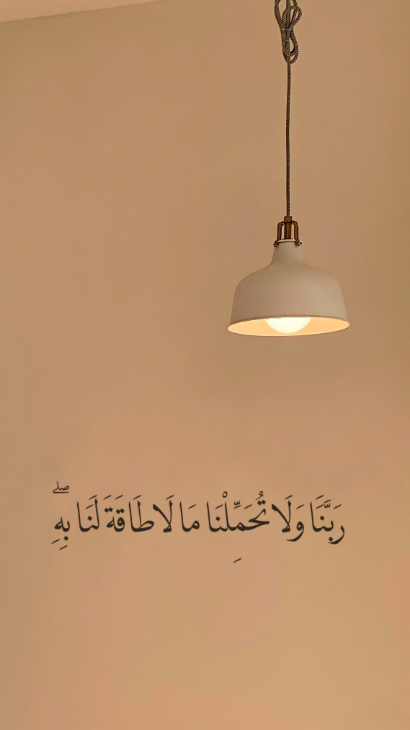 رَبَّنَا وَلَا تُحَمِّلْنَا مَا لَا طَاقَةَ لَنَا بِهِۦ ۖ